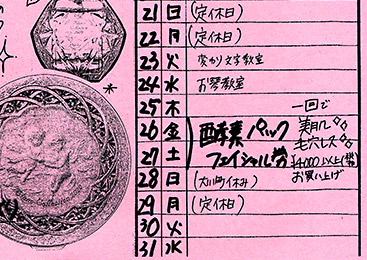 21 日 (定休日)
22 月 (定休日)
23 火 変かり文字教室
24 水 お琴教室
25 木
26 金 酵素パック
27 土 フェイシャル券
一回で
美肌
毛穴レス
¥4000以上(税)
お買い上げ
28 日 (大川町休み)
29 月 (定休日)
30 火
31 水